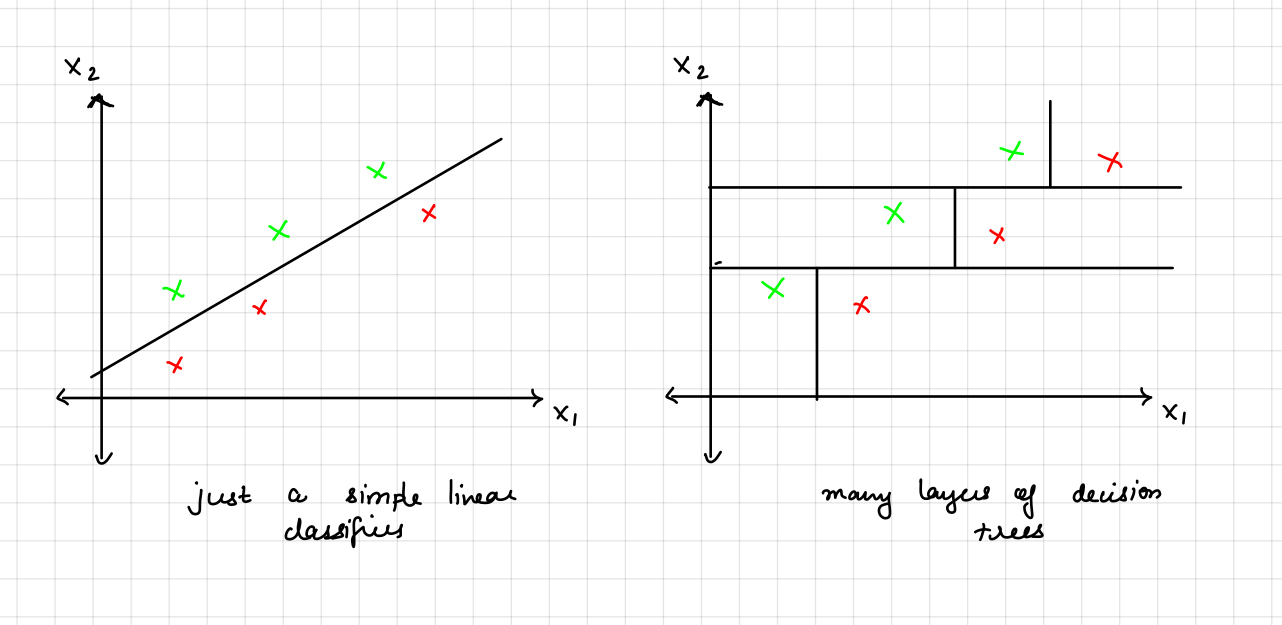 x₂
x₁
just a simple linear
classifies
x₂
x₁
many layers of decision
trees